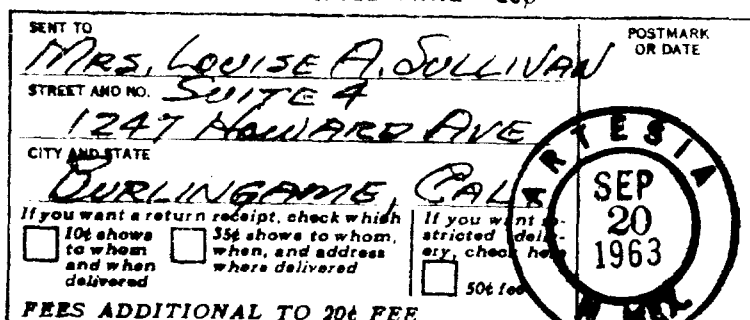 SENT TO
MRS. LOUISE A. SULLIVAN
POSTMARK
OR DATE
STREET AND NO.
SUITE 4
1247 HOWARD AVE
CITY AND STATE
BURLINGAME, CALIF
ARTESIA
SEP
20
1963
N MEX
If you want a return receipt, check which
10¢ shows
to whom
and when
delivered
35¢ shows to whom,
when, and address
where delivered
If you want re-
stricted deliv-
ery, check here
50¢ fee
FEES ADDITIONAL TO 20¢ FEE